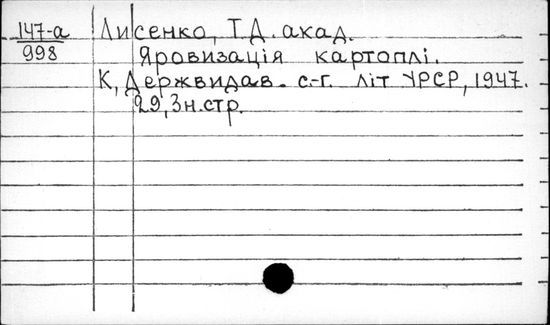 147-а Лисенко, Т.Д. акад.
998 Яровизація картоплі.
К, Держвидав. с-г. літ УРСР, 1947.
29, 3н.стр.